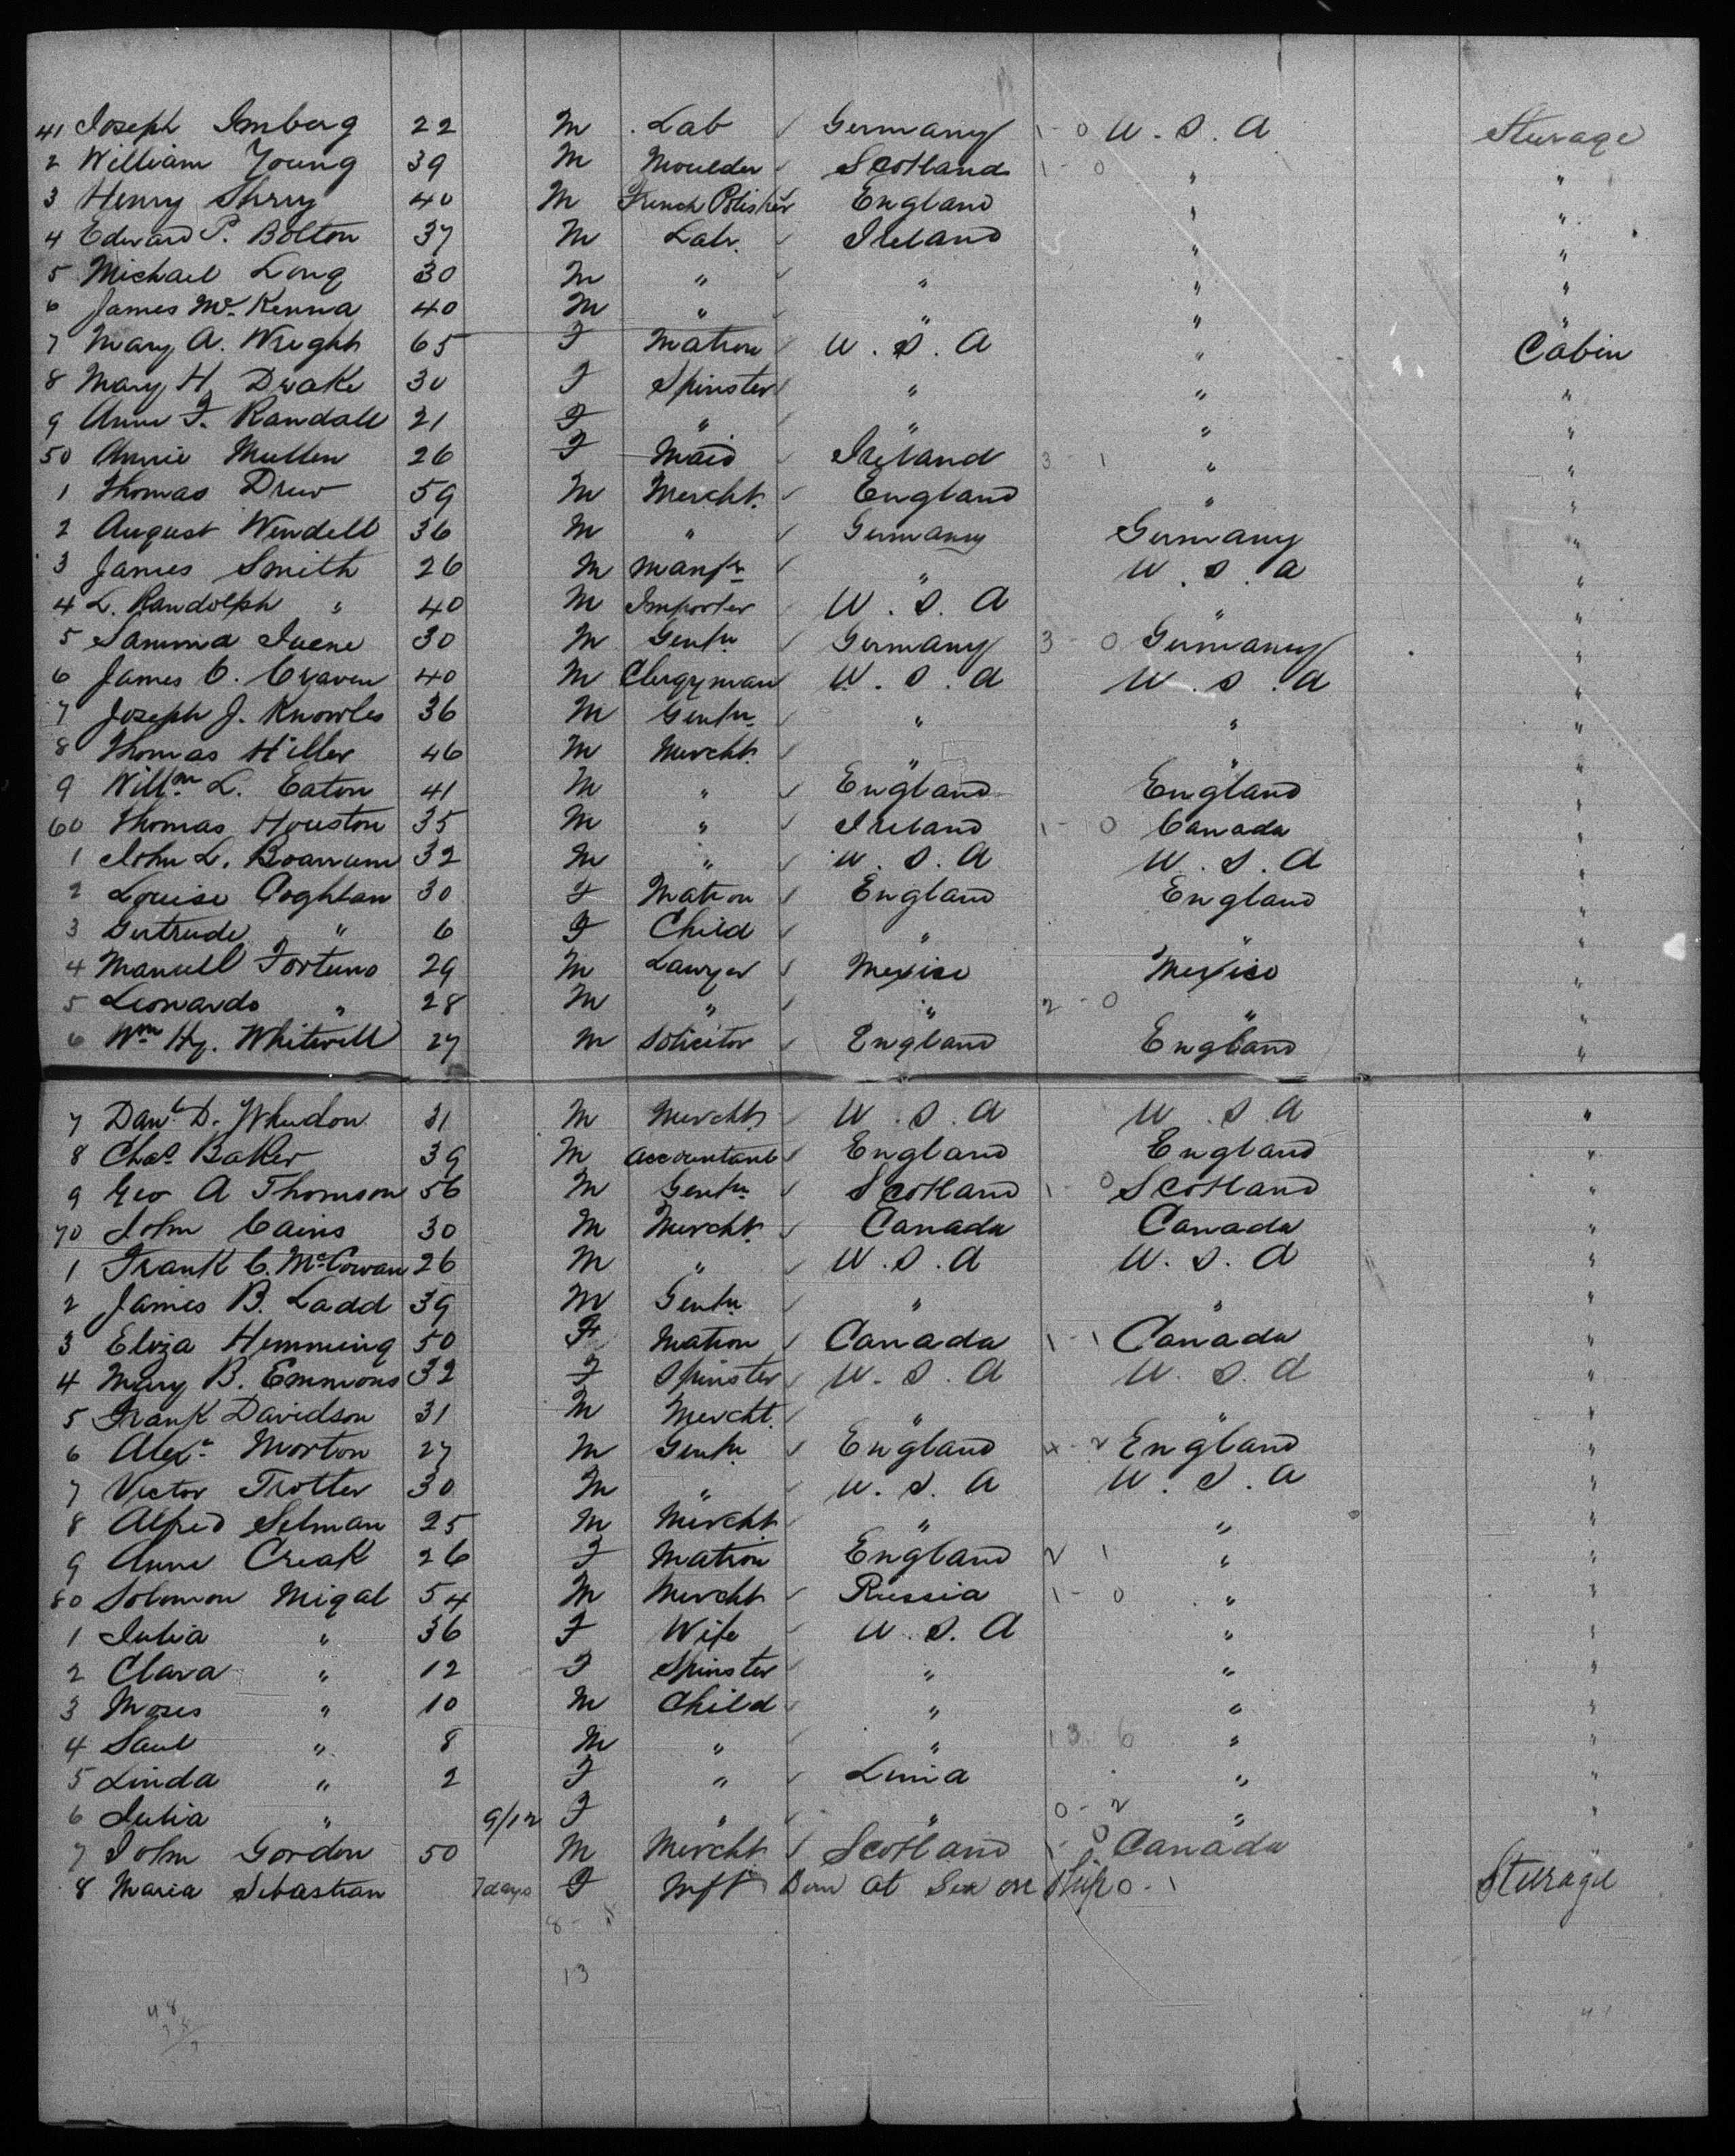 41 Joseph Imberg 22 M Lab ✓ Germany 1 - 0 U. S. A Steerage
2 William Young 39 M Moulder ✓ Scotland 1 - 0 " "
3 Henry 40 M French Polisher England " "
4 Edward P. Bolton 37 M Labr. ✓ Ireland " "
5 Michael Long 30 M " ✓ " " "
6 James Mc Kenna 40 M " ✓ " " "
7 Mary A. Wright 65 F Matron ✓ U. S. A " Cabin
8 Mary H. Drake 30 F Spinster ✓ " " "
9 Anne F. Randall 21 F " ✓ " " "
50 Annie Mullen 26 F Maid ✓ Ireland 3 - 1 " "
1 Thomas Drew 59 M Mercht. ✓ England " "
2 August Wendell 36 M " ✓ Germany Germany "
3 James Smith 26 M Manfr ✓ " U. S. A "
4 L. Randolph " 40 M Importer ✓ U. S. A " "
5 30 M Gentn ✓ Germany 3 - 0 Germany "
6 James C. Craven 40 M Clergyman U. S. A U. S. A "
7 Joseph J. Knowles 36 M Gentn ✓ " " "
8 Thomas Hiller 46 M Mercht. ✓ " " "
9 Willm L. Eaton 41 M " ✓ England England "
60 Thomas Houston 35 M " ✓ Ireland 1 - 0 Canada "
1 John L. Boarrum 32 M " ✓ U. S. A U. S. A "
2 Louise Coghlan 30 F Matron ✓ England England "
3 Gertrude " 6 F Child ✓ " " "
4 Manuell Fortuno 29 M Lawyer ✓ Mexico Mexico "
5 Leonardo " 28 M " ✓ " 2 - 0 " "
6 Wm Hy. Whitwell 27 M Solicitor ✓ England England "
7 Danl D. Wheedon 31 M Mercht. ✓ U. S. A U. S. A "
8 Chas Baker 39 M Accountant ✓ England England "
9 Geo A Thomson 56 M Gentn ✓ Scotland 1 - 0 Scotland "
70 John Cains 30 M Mercht. ✓ Canada Canada "
1 Frank C. McCowan 26 M " ✓ U. S. A U. S. A "
2 James B. Ladd 39 M Gentn ✓ " " "
3 Eliza Hemming 50 F Matron ✓ Canada 1 - 1 Canada "
4 Mary B. Emmons 32 F Spinster ✓ U. S. A U. S. A "
5 Frank Davidson 31 M Mercht. ✓ " " "
6 Alexr Morton 27 M Gentn ✓ England 4 - 2 England "
7 Victor Trotter 30 M " ✓ U. S. A U. S. A "
8 Alfred Selman 25 M Mercht. ✓ " " "
9 Anne Creak 26 F Matron England 2 1 " "
80 Solomon Migal 54 M Mercht ✓ Russia 1 - 0 " "
1 Julia " 36 F Wife ✓ U. S. A " "
2 Clara " 12 F Spinster ✓ " " "
3 Moses " 10 M Child ✓ " " "
4 Saul " 8 M " " 13 6 " "
5 Linda " 2 F " ✓ Lima " "
6 Julia " 9/12 F " ✓ " 0 - 2 " "
7 John Gordon 50 M Mercht ✓ Scotland 1 - 0 Canada "
8 Maria Sebastian 7 days F Inft Born at Sea on Ship 0 - 1 Steerage
8 -
13
48